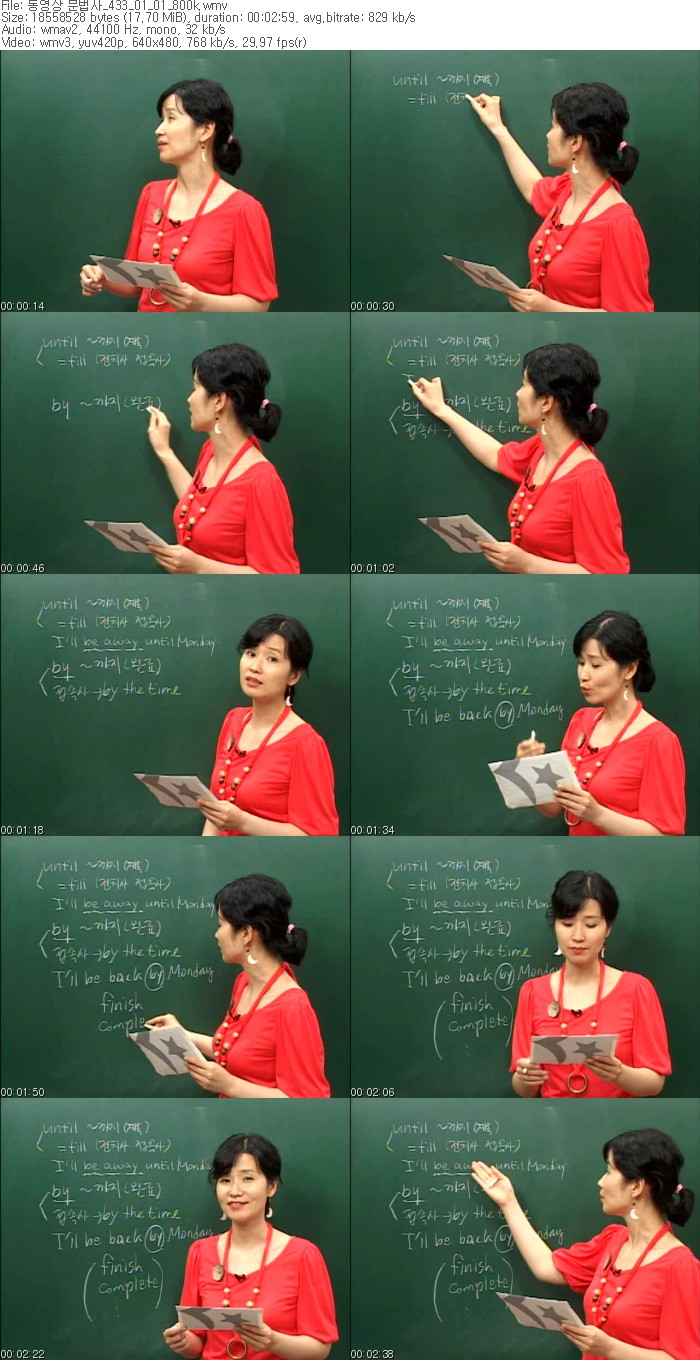 File: 동영상 문법사_433_01_01_800k.wmv
Size: 18558528 bytes (17.70 MiB), duration: 00:02:59, avg.bitrate: 829 kb/s
Audio: wmav2, 44100 Hz, mono, 32 kb/s
Video: wmv3, yuv420p, 640x480, 768 kb/s, 29.97 fps(r)
until ~까지
=till
00:00:14
00:00:30
until ~까지
=till (전치사 접속사)
by ~까지 (완료)
until ~까지
=till (전치사 접속사)
by ~까지 (완료)
접속사→by the time
00:00:46
00:01:02
until ~까지
=till (전치사 접속사)
I'll be away until Monday
by ~까지 (완료)
접속사→by the time
until ~까지
=till (전치사 접속사)
I'll be away until Monday
by ~까지 (완료)
접속사→by the time
I'll be back by Monday
00:01:18
00:01:34
until ~까지
=till (전치사 접속사)
I'll be away until Monday
by ~까지 (완료)
접속사→by the time
I'll be back by Monday
finish
comple
until ~까지
=till (전치사 접속사)
I'll be away until Monda
by ~까지 (완료)
접속사→by the time
I'll be back by Mon
(finish
complete)
00:01:50
00:02:06
until ~까지
=till (전치사 접속사)
I'll be away until Monday
by ~까지 (완료)
접속사→by the time
I'll be back by Monday
(finish
complete)
until ~까지
=till (전치사 접속사)
I'll be aw until Monday
by ~까지
접속사→by the time
I'll be back by Monday
(finish
complete)
00:02:22
00:02:38